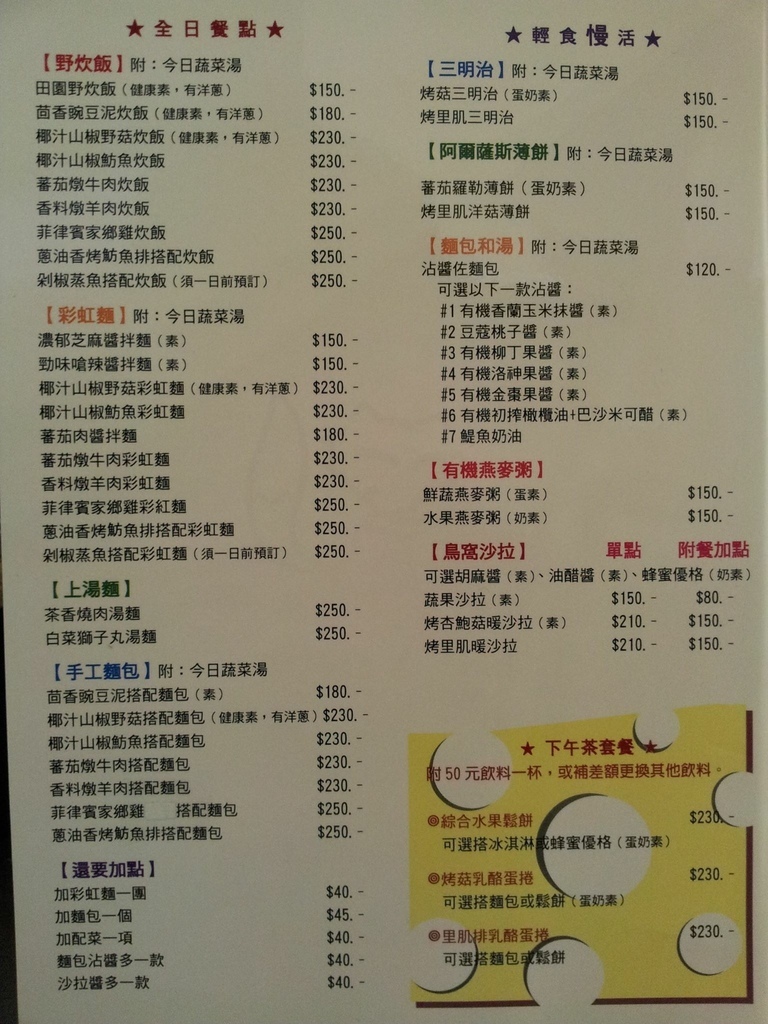 ★全日餐點★
【野炊飯】附：今日蔬菜湯
田園野炊飯（健康素，有洋蔥） $150.-
茴香豌豆泥炊飯（健康素，有洋蔥） $180.-
椰汁山椒野菇炊飯（健康素，有洋蔥） $230.-
椰汁山椒魴魚炊飯 $230.-
蕃茄燉牛肉炊飯 $230.-
香料燉羊肉炊飯 $230.-
菲律賓家鄉雞炊飯 $250.-
蔥油香烤魴魚排搭配炊飯 $250.-
剁椒蒸魚搭配炊飯（須一日前預訂） $250.-
【彩虹麵】附：今日蔬菜湯
濃郁芝麻醬拌麵（素） $150.-
勁味嗆辣醬拌麵（素） $150.-
椰汁山椒野菇彩虹麵（健康素，有洋蔥） $230.-
椰汁山椒魴魚彩虹麵 $230.-
蕃茄肉醬拌麵 $180.-
蕃茄燉牛肉彩虹麵 $230.-
香料燉羊肉彩虹麵 $230.-
菲律賓家鄉雞彩紅麵 $250.-
蔥油香烤魴魚排搭配彩虹麵 $250.-
剁椒蒸魚搭配彩虹麵（須一日前預訂） $250.-
【上湯麵】
茶香燒肉湯麵 $250.-
白菜獅子丸湯麵 $250.-
【手工麵包】附：今日蔬菜湯
茴香豌豆泥搭配麵包（素） $180.-
椰汁山椒野菇搭配麵包（健康素，有洋蔥） $230.-
椰汁山椒魴魚搭配麵包 $230.-
蕃茄燉牛肉搭配麵包 $230.-
香料燉羊肉搭配麵包 $230.-
菲律賓家鄉雞 搭配麵包 $250.-
蔥油香烤魴魚排搭配麵包 $250.-
【還要加點】
加彩虹麵一團 $40.-
加麵包一個 $45.-
加配菜一項 $40.-
麵包沾醬多一款 $40.-
沙拉醬多一款 $40.-
★輕食慢活★
【三明治】附：今日蔬菜湯
烤菇三明治（蛋奶素） $150.-
烤里肌三明治 $150.-
【阿爾薩斯薄餅】附：今日蔬菜湯
蕃茄羅勒薄餅（蛋奶素） $150.-
烤里肌洋菇薄餅 $150.-
【麵包和湯】附：今日蔬菜湯
沾醬佐麵包 $120.-
可選以下一款沾醬：
#1 有機香蘭玉米抹醬（素）
#2 豆蔻桃子醬（素）
#3 有機柳丁果醬（素）
#4 有機洛神果醬（素）
#5 有機金棗果醬（素）
#6 有機初搾橄欖油+巴沙米可醋（素）
#7 鯷魚奶油
【有機燕麥粥】
鮮蔬燕麥粥（蛋素） $150.-
水果燕麥粥（奶素） $150.-
【鳥窩沙拉】 單點 附餐加點
可選胡麻醬（素）、油醋醬（素）、蜂蜜優格（奶素）
蔬果沙拉（素） $150.- $80.-
烤杏鮑菇暖沙拉（素） $210.- $150.-
烤里肌暖沙拉 $210.- $150.-
★下午茶套餐★
附50元飲料一杯，或補差額更換其他飲料。
◎綜合水果鬆餅 $230.-
可選搭冰淇淋或蜂蜜優格（蛋奶素）
◎烤菇乳酪蛋捲 $230.-
可選搭麵包或鬆餅（蛋奶素）
◎里肌排乳酪蛋捲 $230.-
可選搭麵包或鬆餅